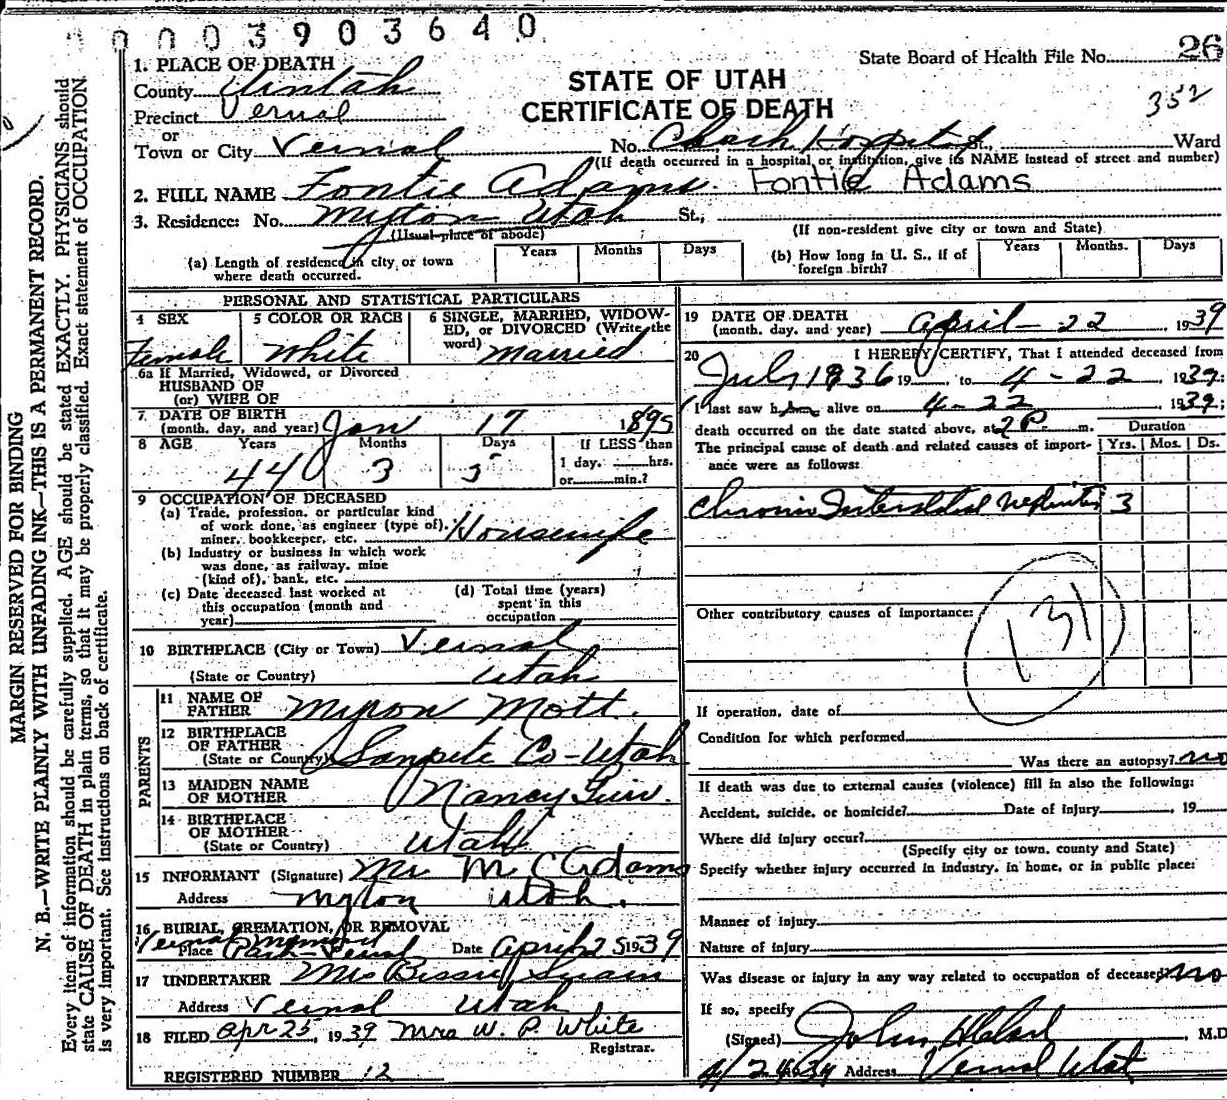 0003903640
State Board of Health File No. 26
352
STATE OF UTAH
CERTIFICATE OF DEATH
1. PLACE OF DEATH
County Uintah
Precinct Vernal
or
Town or City Vernal No. Hospital St., Ward
(If death occurred in a hospital or institution, give its NAME instead of street and number)
2. FULL NAME Fontie Adams. Fontie Adams
3. Residence: No. Myton Utah St.,
(Usual place of abode) (If non-resident give city or town and State)
(a) Length of residence in city or town where death occurred. Years Months Days
(b) How long in U. S., if of foreign birth? Years Months. Days
PERSONAL AND STATISTICAL PARTICULARS
4 SEX Female
5 COLOR OR RACE White
6 SINGLE, MARRIED, WIDOWED, or DIVORCED (Write the word) Married
6a If Married, Widowed, or Divorced
HUSBAND OF
(or) WIFE OF
7. DATE OF BIRTH
(month, day, and year) Jan 17 1895
8 AGE Years Months Days If LESS than
44 3 5 1 day. hrs.
or min.?
9 OCCUPATION OF DECEASED
(a) Trade, profession, or particular kind
of work done, as engineer (type of),
miner, bookkeeper, etc. Housewife
(b) Industry or business in which work
was done, as railway, mine
(kind of), bank, etc.
(c) Date deceased last worked at
this occupation (month and
year)
(d) Total time (years)
spent in this
occupation
10 BIRTHPLACE (City or Town) Vernal
(State or Country) Utah
PARENTS
11 NAME OF
FATHER Myron Mott.
12 BIRTHPLACE
OF FATHER
(State or Country) Sanpete Co-Utah
13 MAIDEN NAME
OF MOTHER Nancy
14 BIRTHPLACE
OF MOTHER
(State or Country) Utah
15 INFORMANT (Signature) Mr M C Adams
Address Myton Utah.
16 BURIAL, CREMATION, OR REMOVAL
Vernal Memori
Place Park-Vernal Date April 25 1939
17 UNDERTAKER Mrs Swain
Address Vernal Utah
18 FILED Apr 25, 1939 Mrs W. P. White
Registrar.
REGISTERED NUMBER 12
19 DATE OF DEATH
(month, day, and year) April - 22, 1939
20 I HEREBY CERTIFY, That I attended deceased from
July 1936 19 , to 4-22, 1939:
I last saw her alive on 4-22, 1939:
death occurred on the date stated above, at 2 P. m. Duration
The principal cause of death and related causes of importance were as follows: Yrs. Mos. Ds.
Chronic Interstitial Nephritis 3
Other contributory causes of importance:
131
If operation, date of
Condition for which performed
Was there an autopsy? no
If death was due to external causes (violence) fill in also the following:
Accident, suicide, or homicide? Date of injury , 19
Where did injury occur?
(Specify city or town, county and State)
Specify whether injury occurred in industry, in home, or in public place:
Manner of injury
Nature of injury
Was disease or injury in any way related to occupation of deceased no
If so, specify
(Signed) John , M.D
4/24 39 Address Vernal Utah
MARGIN RESERVED FOR BINDING
N. B.—WRITE PLAINLY WITH UNFADING INK—THIS IS A PERMANENT RECORD.
Every item of information should be carefully supplied. AGE should be stated EXACTLY. PHYSICIANS should
state CAUSE OF DEATH in plain terms, so that it may be properly classified. Exact statement of OCCUPATION
is very important. See instructions on back of certificate.